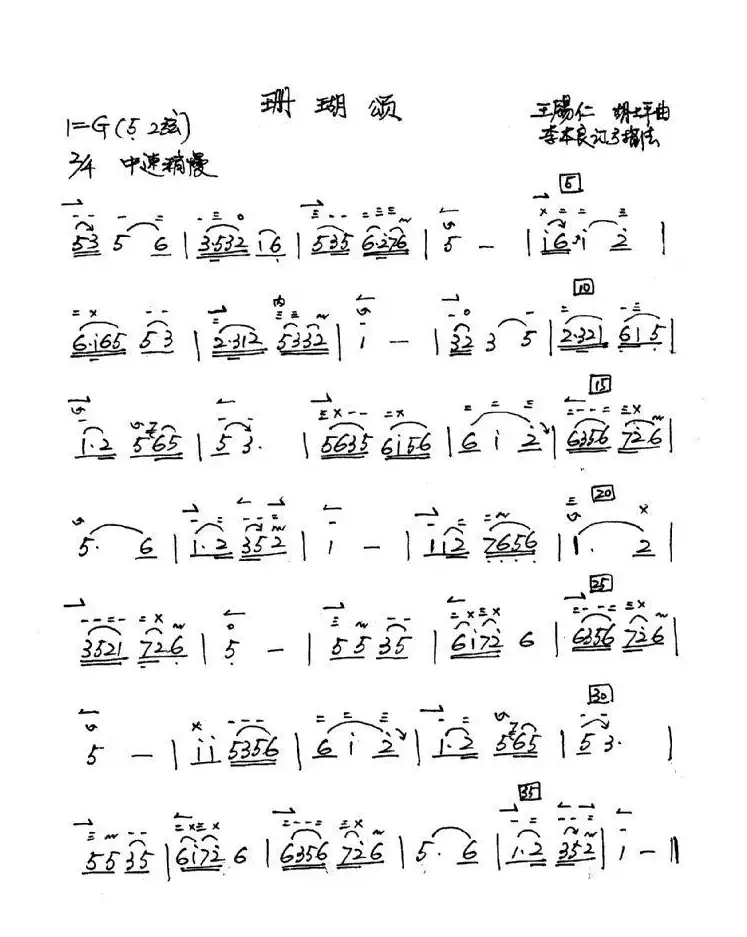 珊瑚颂
1=G(5 2弦)
王锡仁 胡士平曲
李本良订弓指法
2/4 中速稍慢
5
53 5 6 | 3·532 i6 | 535 6·276 | 5 - | i6·i 2 |
10
6·i65 53 | 2·312 5332 | 1 - | 32 3 5 | 2·321 615 |
15
1·2 565 | 53· | 5635 6i56 | 6 i 2 | 6356 726 |
20
5· 6 | 1·2 352 | 1 - | 112 7656 | 1· 2 |
25
3521 726 | 5 - | 55 35 | 6i72 6 | 6356 726 |
30
5 - | ii 5356 | 6 i 2 | 1·2 565 | 53· |
35
55 35 | 6i72 6 | 6356 726 | 5· 6 | 1·2 352 | i - ‖